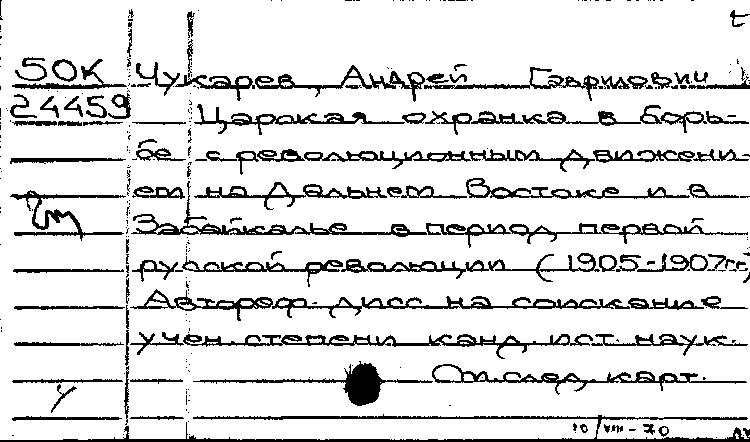 t
50К Чукарев, Андрей Гаврилович
24459 Царская охранка в борь-
бе с революционным движени-
ем на Дальнем Востоке и в
Забайкалье в период первой
русской революции (1905-1907гг.)
Автореф. дисс. на соискание
учен. степени канд. ист. наук.
См. след. карт.
10/VIII-70